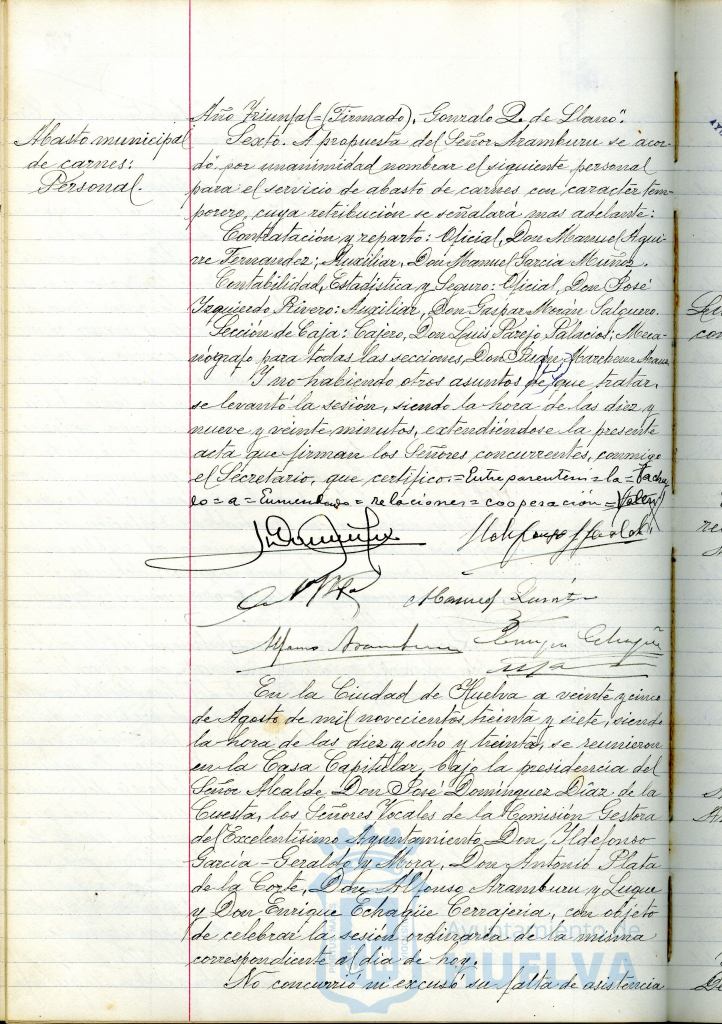 Año Triunfal = (Firmado), Gonzalo Q. de Llano".
Abasto municipal
de carnes:
Personal.
Sexto. A propuesta del Señor Aramburu se acor-
dó por unanimidad nombrar el siguiente personal
para el servicio de abasto de carnes con caracter tem-
pororo, cuya retribución se señalará mas adelante:
Contratación y reparto: Oficial, Don Manuel Agui-
rre Fernandez; Auxiliar, Don Manuel Garcia Muñoz.
Contabilidad, Estadistica y Seguro: Oficial, Don José
Izquierdo Rivero: Auxiliar, Don Gaspar Morán Salguero.
Sección de Caja: Cajero, Don Luis Parejo Palacios; Meca-
nógrafo para todas las secciones, Don Juan Marchena
Y no habiendo otros asuntos de que tratar,
se levantó la sesión, siendo la hora de las diez y
nueve y veinte minutos, extendiéndose la presente
acta que firman los Señores concurrentes, conmigo
el Secretario, que certifico. = Entre parentesis = la = Tacha-
do = a = Enmendado = relaciones = cooperación = Valen
Manuel
Alfonso Aramburu
Enrique Echagüe
En la Ciudad de Huelva a veinte y cinco
de Agosto de mil novecientos treinta y siete, siendo
la hora de las diez y ocho y treinta, se reunieron
en la Casa Capitular, bajo la presidencia del
Señor Alcalde Don José Domínguez Diaz de la
Cuesta, los Señores Vocales de la Comisión Gestora
del Excelentisimo Ayuntamiento, Don Ildefonso
Garcia-Geraldo y Mora, Don Antonio Plata
de la Corte, Don Alfonso Aramburu y Luque
y Don Enrique Echagüe Cerrajeria, con objeto
de celebrar la sesión ordinarea de la misma
correspondiente al dia de hoy.
No concurrió ni excusó su falta de asistencia
Ayuntamiento de
HUELVA